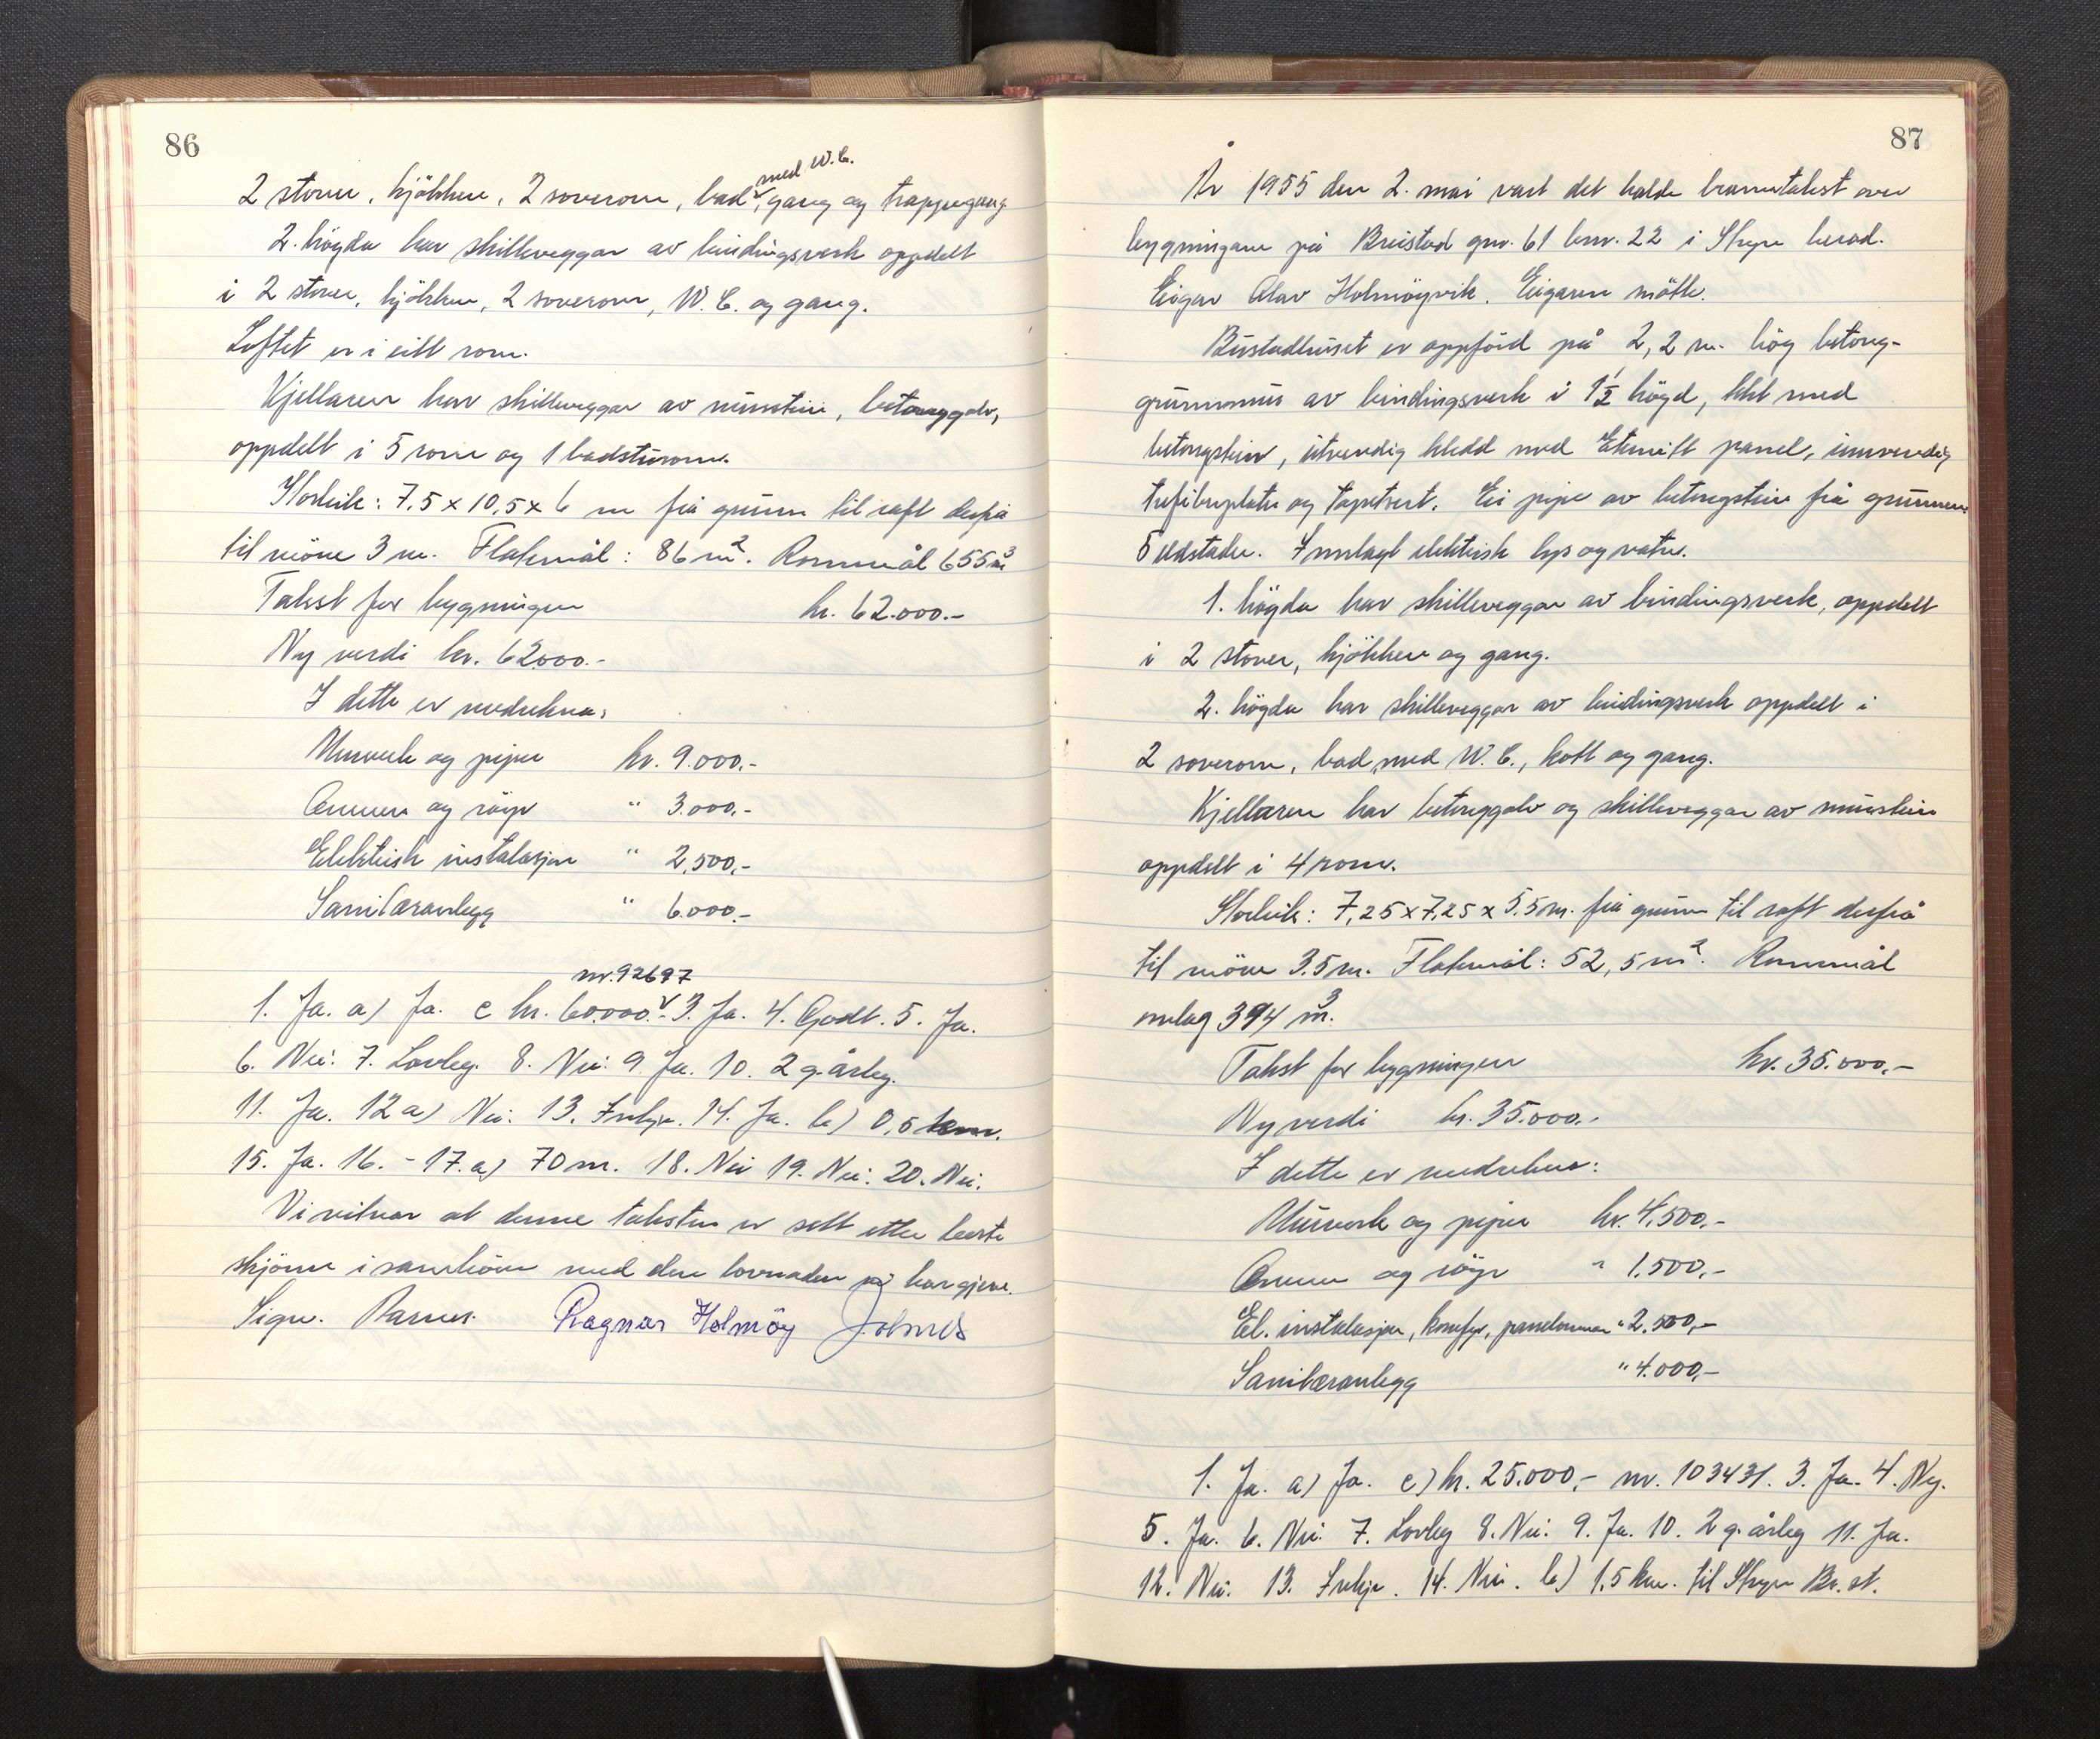 86
2 stover, kjökken, 2 soverom, bad, med W.C. gang og trappegang
2. högda har skilleveggar av bindingsverk oppdelt
i 2 stover, kjökken, 2 soverom, W.C. og gang.
Loftet er i eitt rom.
Kjellaren har skilleveggar av murstein, betonggolv,
oppdelt i 5 rom og 1 badsturom.
Storleik: 7,5 x 10,5 x 6 m frå grunn til raft derfrå
til möne 3 m. Flatemål: 86 m². Rommål 655 m³
Takst for bygningen kr. 62.000.-
Ny verdi kr. 62000.-
I dette er medrekna:
Murverk og piper kr. 9.000.-
Omnar og röyr " 3.000,-
Elektrisk instalasjon " 2.500,-
Sanitæranlegg " 6.000.-
nr. 92697
1. Ja. a) Ja. c kr. 60.000.- 3. Ja. 4. Godt. 5. Ja.
6. Nei. 7. Lovleg. 8. Nei. 9. Ja. 10. 2 g. årleg.
11. Ja. 12 a) Nei. 13. Innkjr. 14. Ja. b) 0,5 km.
15. Ja. 16. - 17. a) 70 m. 18. Nei 19. Nei. 20. Nei.
Vi vitnar at denne taksten er sett etter beste
skjönn i samhöve med den lovnaden vi har gjeve.
Sign. Ragnar Holmöy
87
År 1955 den 2. mai vart det halde branntakst over
bygningane på Breistad gnr. 61 bnr. 22 i Stryn herad.
Eigar Olav Holmöyvik. Eigaren mötte.
Bustadhuset er oppförd på 2,2 m. hög betong-
grunnmur av bindingsverk i 1½ högd, tekt med
betongstein, utvendig kledd med Eternitt panel, innvendig
trefiberplater og tapetsert. Ei pipe av betongstein frå grunnen.
5 eldstader. Innlagt elektrisk lys og vatn.
1. högda har skilleveggar av bindingsverk, oppdelt
i 2 stover, kjökken og gang.
2. högda har skilleveggar av bindingsverk oppdelt i
2 soverom, bad med W.C., kott og gang.
Kjellaren har betonggolv og skilleveggar av murstein
oppdelt i 4 rom.
Storleik: 7,25 x 7,25 x 5.5 m. frå grunn til raft derfrå
til möne 3.5 m. Flatemål: 52,5 m². Rommål
omlag 394 m³.
Takst for bygningen kr. 35.000.-
Ny verdi kr. 35.000.-
I dette er medrekna:
Murverk og piper kr. 4.500.-
Omnar og röyr " 1.500,-
El. instalasjon, komfyr, panelomnar " 2.500,-
Sanitæranlegg " 4.000,-
1. Ja. a) Ja. c) kr. 25.000,- nr. 103431. 3. Ja. 4. Ny.
5. Ja. 6. Nei. 7. Lovleg 8. Nei. 9. Ja. 10. 2 g. årleg 11. Ja.
12. Nei. 13. Innkjr. 14. Nei. b) 1,5 km. til Stryn Br. st.